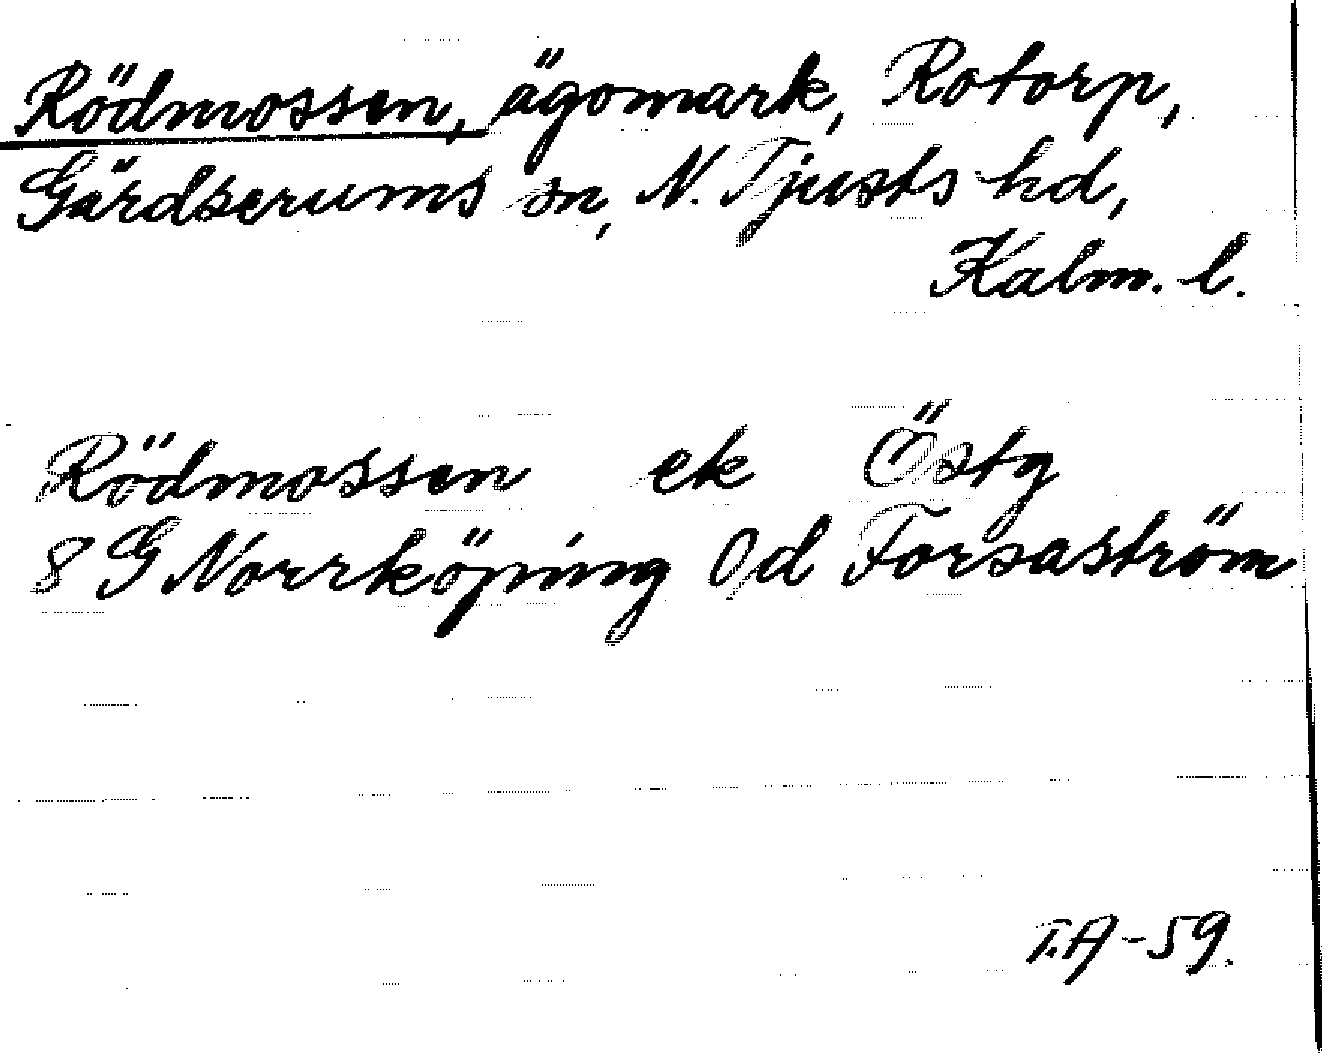 Rödmossen, ägomark, Rotorp,
Gärdserums sn, N. Tjusts hd,
Kalm. l.
Rödmossen ek Östg
8 G Norrköping 0d Forsaström
T.A-59.